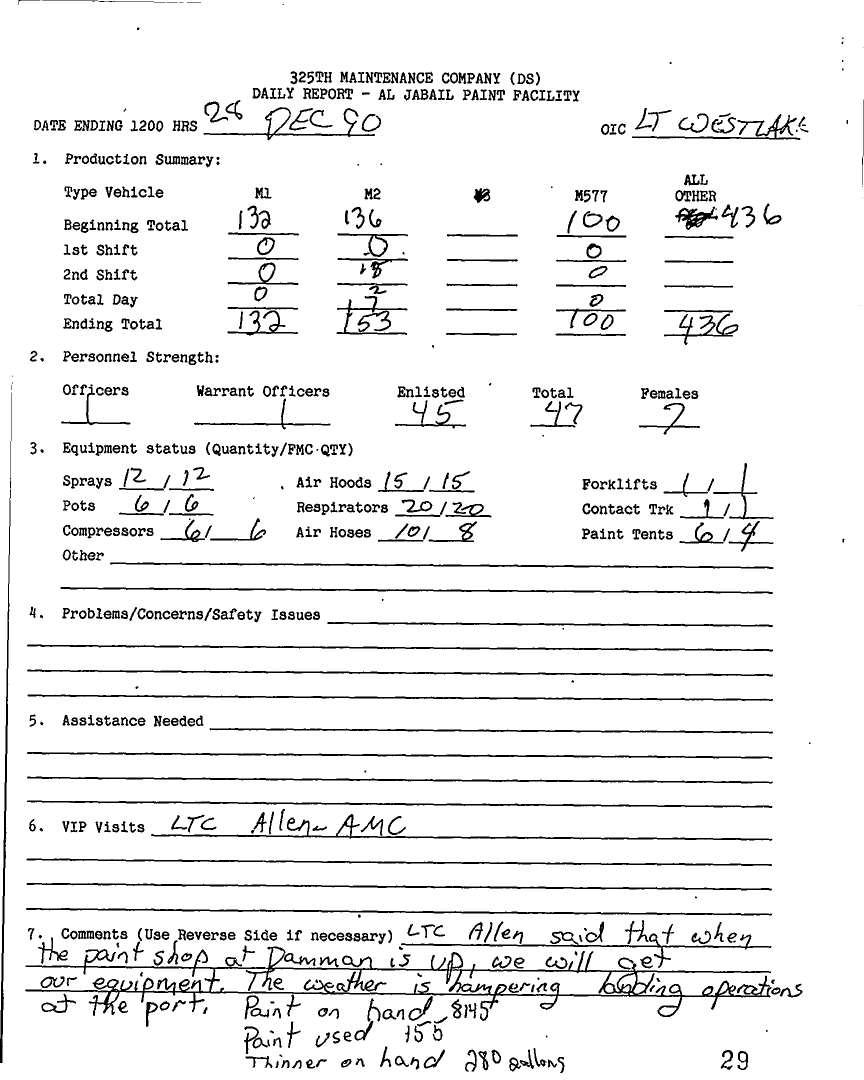 325TH MAINTENANCE COMPANY (DS)
DAILY REPORT - AL JABAIL PAINT FACILITY
DATE ENDING 1200 HRS 28 DEC 90 OIC LT WESTLAKE
1. Production Summary:
Type Vehicle M1 M2 M577 ALL OTHER
Beginning Total 132 136 100 436
1st Shift 0 0 0
2nd Shift 0 0
Total Day 0 17 0
Ending Total 132 153 100 436
2. Personnel Strength:
Officers Warrant Officers Enlisted Total Females
1 1 45 47 7
3. Equipment status (Quantity/FMC QTY)
Sprays 12 / 12 Air Hoods 15 / 15 Forklifts 1 / 1
Pots 6 / 6 Respirators 20 / 20 Contact Trk 1 / 1
Compressors 6 / 6 Air Hoses 10 / 8 Paint Tents 6 / 4
Other
4. Problems/Concerns/Safety Issues
5. Assistance Needed
6. VIP Visits LTC Allen - AMC
7. Comments (Use Reverse Side if necessary) LTC Allen said that when
the paint shop at Damman is up, we will get
our equipment. The weather is hampering landing operations
at the port. Paint on hand 8145
Paint used 155
Thinner on hand 280 gallons
29